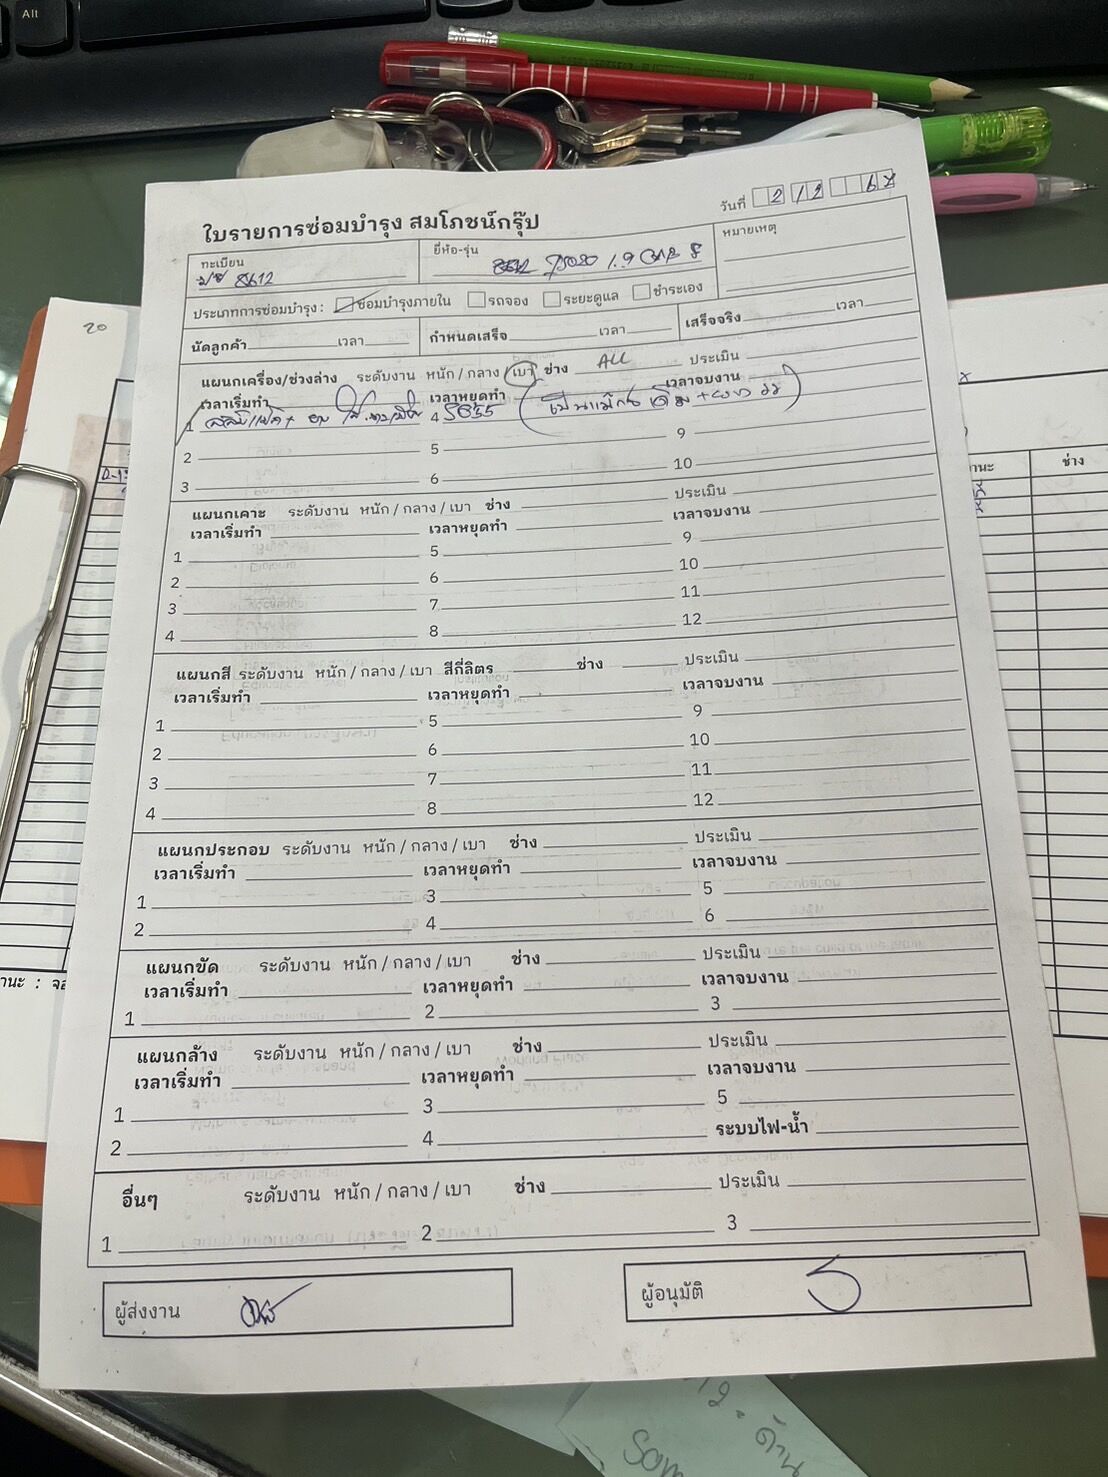 Alt
20
ใบรายการซ่อมบำรุง สมโภชน์กรุ๊ป
วันที่ 2 / 2 6
ทะเบียน 8612
ยี่ห้อ-รุ่น 1.9
หมายเหตุ
ประเภทการซ่อมบำรุง : ซ่อมบำรุงภายใน รถจอง ระยะดูแล ชำระเอง
นัดลูกค้า เวลา กำหนดเสร็จ เวลา เสร็จจริง เวลา
แผนกเครื่อง/ช่วงล่าง ระดับงาน หนัก / กลาง / เบา ช่าง ALL ประเมิน
เวลาเริ่มทำ เวลาหยุดทำ เวลาจบงาน
1 4
2 5 9
3 6 10
แผนกเคาะ ระดับงาน หนัก / กลาง / เบา ช่าง ประเมิน
เวลาเริ่มทำ เวลาหยุดทำ เวลาจบงาน
1 5 9
2 6 10
3 7 11
4 8 12
แผนกสี ระดับงาน หนัก / กลาง / เบา สีกี่ลิตร ช่าง ประเมิน
เวลาเริ่มทำ เวลาหยุดทำ เวลาจบงาน
1 5 9
2 6 10
3 7 11
4 8 12
แผนกประกอบ ระดับงาน หนัก / กลาง / เบา ช่าง ประเมิน
เวลาเริ่มทำ เวลาหยุดทำ เวลาจบงาน
1 3 5
2 4 6
แผนกขัด ระดับงาน หนัก / กลาง / เบา ช่าง ประเมิน
เวลาเริ่มทำ เวลาหยุดทำ เวลาจบงาน
1 2 3
แผนกล้าง ระดับงาน หนัก / กลาง / เบา ช่าง ประเมิน
เวลาเริ่มทำ เวลาหยุดทำ เวลาจบงาน
1 3 5
2 4 ระบบไฟ-น้ำ
อื่นๆ ระดับงาน หนัก / กลาง / เบา ช่าง ประเมิน
1 2 3
ผู้ส่งงาน
ผู้อนุมัติ
ช่าง